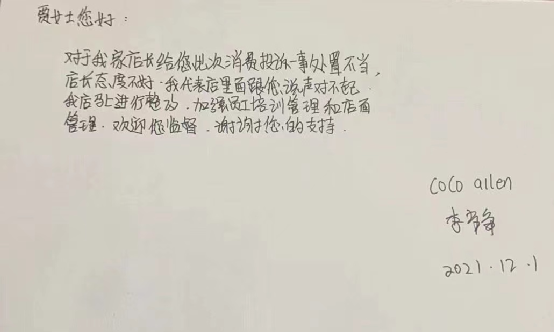 贾女士您好:
对于我家店长给您此次消费投诉一事处置不当,
店长态度不好.我代表店里面跟您说声对不起.
我店马上进行整改.加强员工培训管理和店面
管理.欢迎您监督.谢谢您的支持.
coco allen
李
2021.12.1